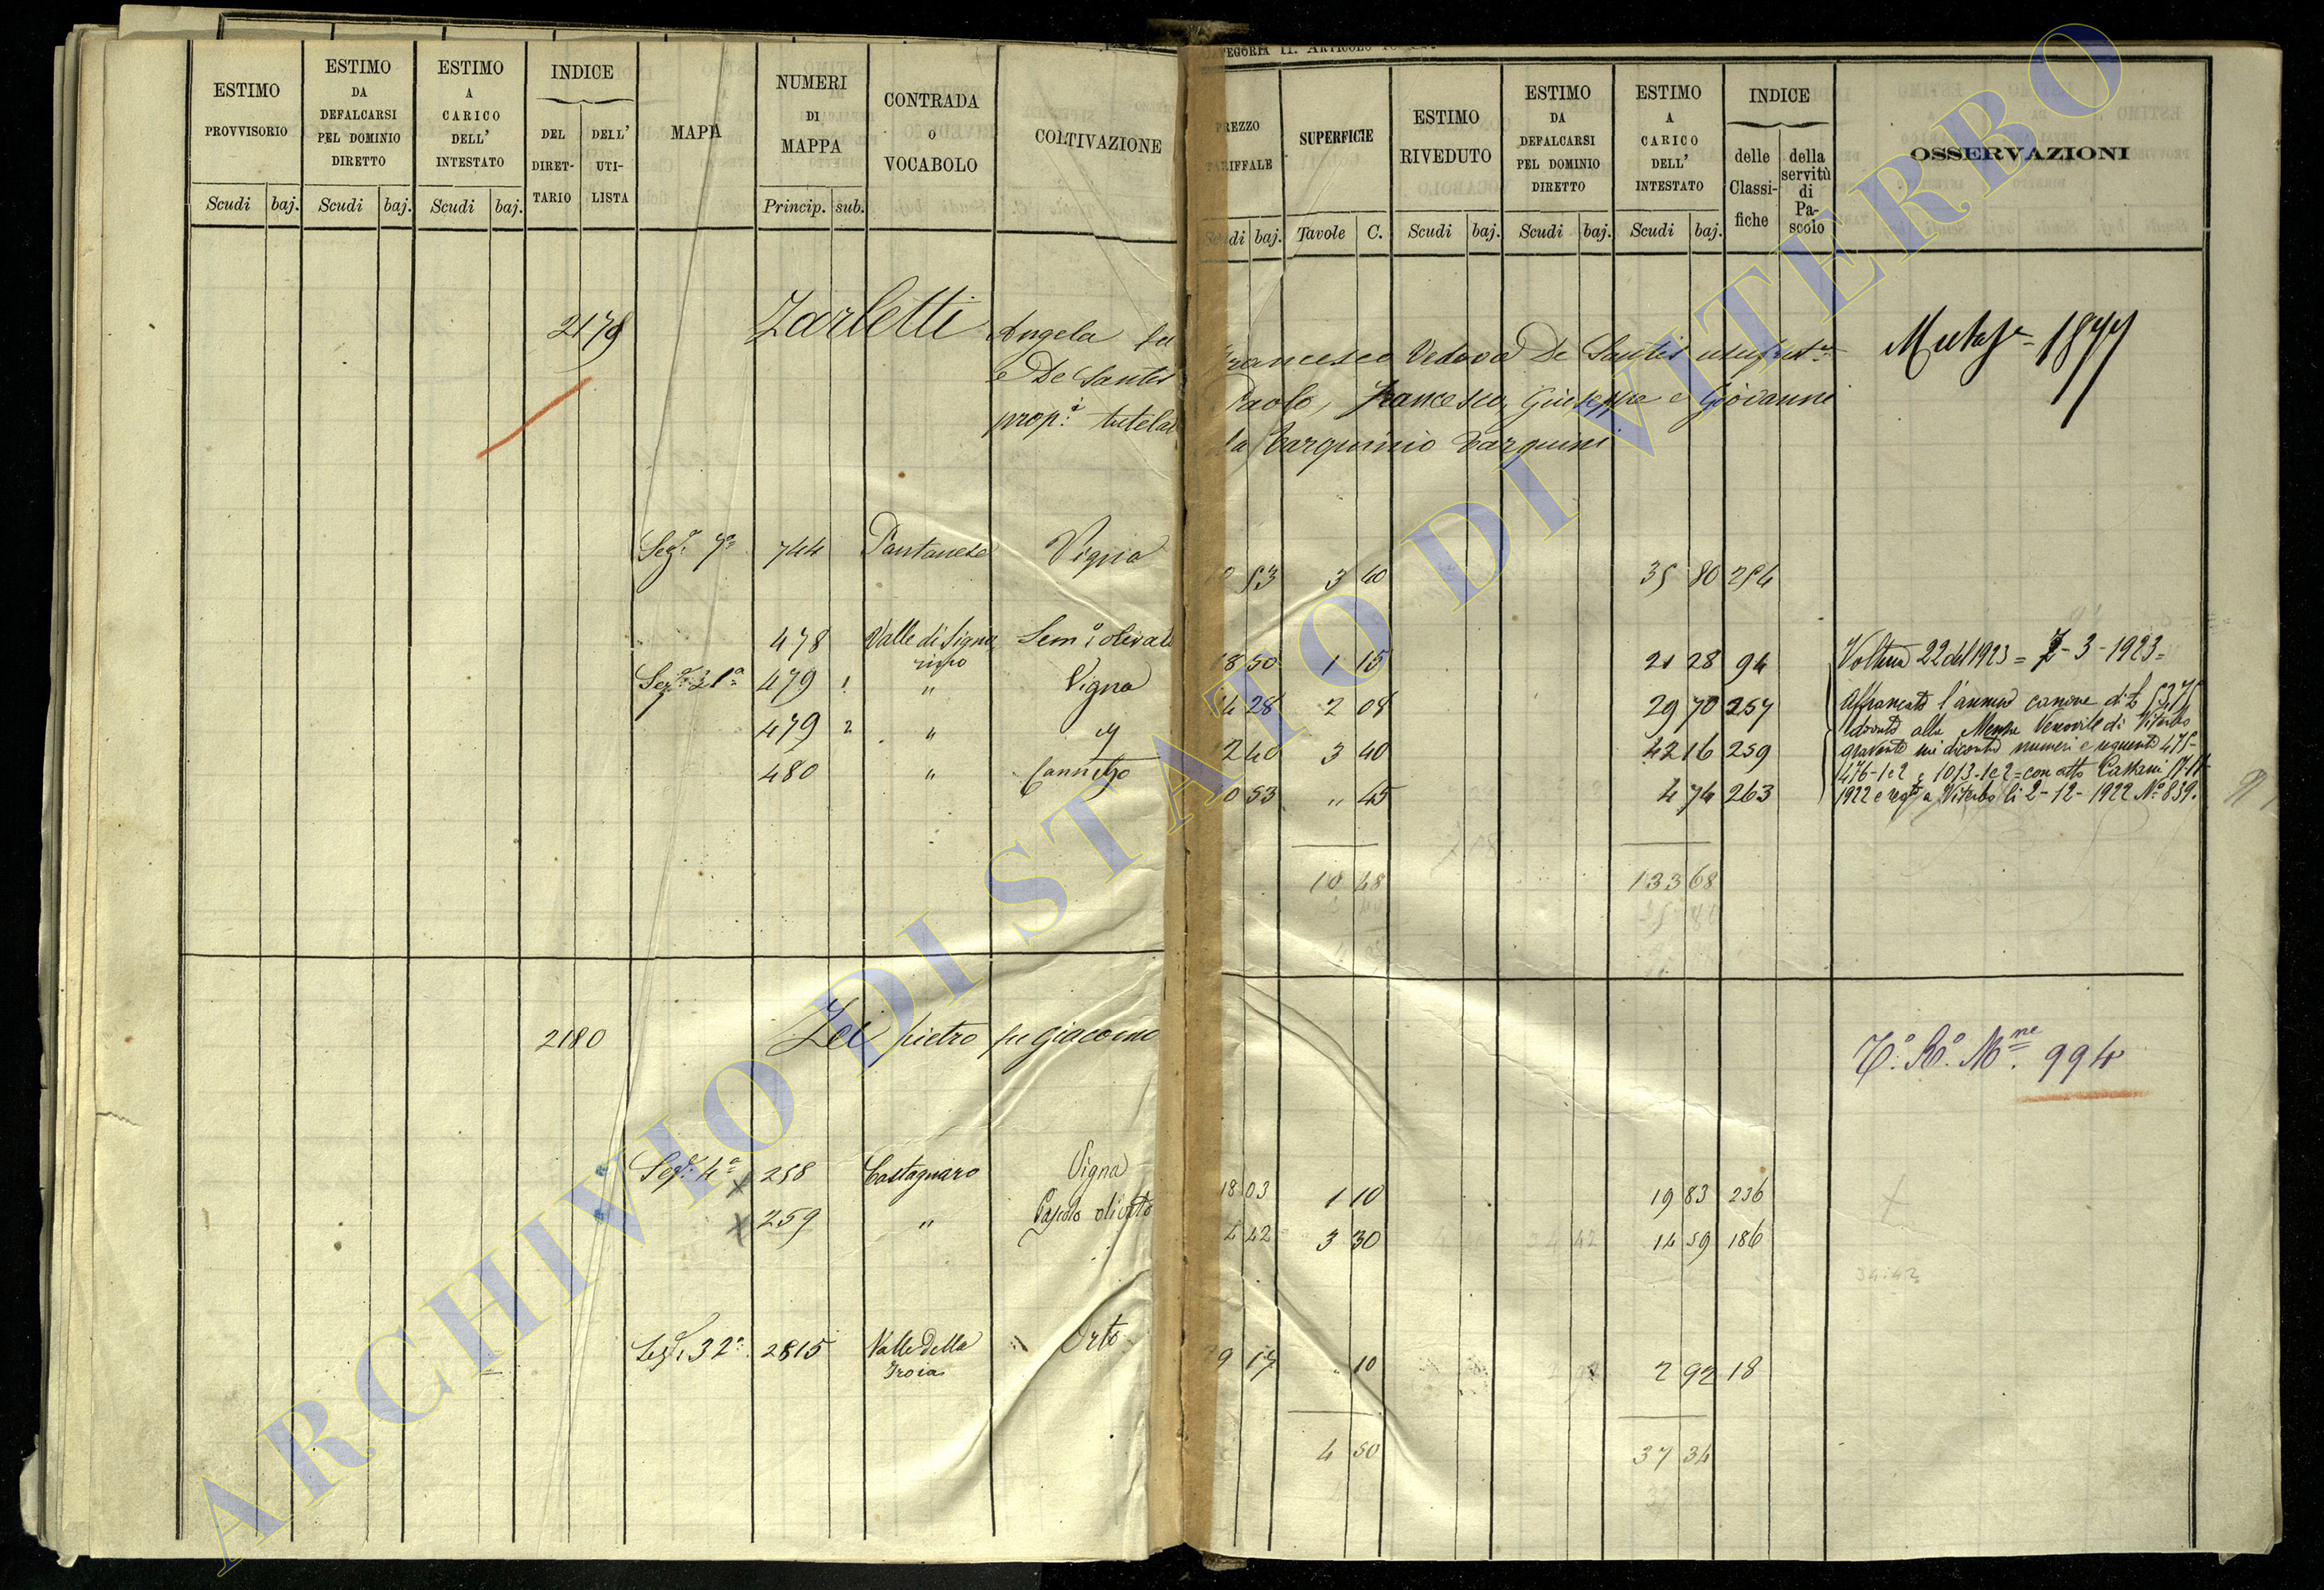 ESTIMO PROVVISORIO
ESTIMO DA DEFALCARSI PEL DOMINIO DIRETTO
ESTIMO A CARICO DELL' INTESTATO
INDICE
DEL DIRET-TARIO
DELL' UTI-LISTA
MAPA
NUMERI DI MAPPA
CONTRADA O VOCABOLO
COLTIVAZIONE
Scudi baj. Scudi baj. Scudi baj. Princip. sub.
PREZZO TARIFFALE
SUPERFICIE
ESTIMO RIVEDUTO
ESTIMO DA DEFALCARSI PEL DOMINIO DIRETTO
ESTIMO A CARICO DELL' INTESTATO
INDICE
delle Classi-fiche
della servitù di Pa-scolo
OSSERVAZIONI
Scudi baj. Tavole C. Scudi baj. Scudi baj. Scudi baj.
2179 Zarletti Angela fu Francesco Vedova De Santis usufrut.a
e De Santis Paolo, Francesco, Giuseppe e Giovanni
prop.i tutelati da Tarquinio Tarquini
1877
Sez.e 7a 744 Pantanese Vigna 10 53 3 40 35 80 254
478 Valle di Signorino Sem.o olivato 18 50 1 15 21 28 94
Sez.e 21a 479 1 " Vigna 14 28 2 08 29 70 257
479 2 " " 12 40 3 40 42 16 259
480 " Canneto 10 53 " 45 4 74 263
Voltura 22 del 1923 = 7-3-1923 =
Affrancato l'annuo canone di £ 53,75
dovuto alla Mensa Vescovile di Viterbo
gravante sui discontro numeri e seguenti 475-
476-1e2 e 1013-1e2 = con atto
1922 e regto a Viterbo li 2-12-1922 No 839.
10 48 133 68
2180 Zei Pietro fu Giacomo
To. Ro. Mne. 994
Sez.e 4a 258 Castagnaro Vigna 18 03 1 10 19 83 236
259 " Pascolo olivato 4 42 3 30 14 59 186
34:42
Sez.e 32a 2815 Valle della Troia Orto 29 17 " 10 2 92 18
4 50 37 34
ARCHIVIO DI STATO DI VITERBO